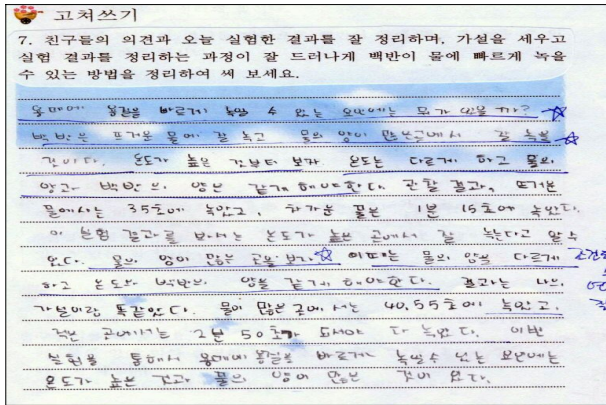 고쳐쓰기
7. 친구들의 의견과 오늘 실험한 결과를 잘 정리하며, 가설을 세우고
실험 결과를 정리하는 과정이 잘 드러나게 백반이 물에 빠르게 녹을
수 있는 방법을 정리하여 써 보세요.
용매에 용질을 바르게 녹일 수 있는 요인에는 뭐가 있을까?
백반은 뜨거운 물에 잘 녹고 물의 양이 많은곳에서 잘 녹을
것이다. 온도가 높은 것부터 보자 온도는 다르게 하고 물의
양과 백반의 양은 같게 해야한다. 관찰 결과, 뜨거운
물에서는 35초에 녹았고, 차가운 물은 1분 15초에 녹았다.
이 실험 결과를 보아서는 온도가 높은 곳에서 잘 녹는다고 알수
있다. 물의 양이 많은 곳을 보자 이때는 물의 양을 다르게
하고 온도와 백반의 양을 같게 해야한다. 결과는 나의
가설이랑 똑같았다. 물이 많은 곳에서는 40.55초에 녹았고,
적은 곳에서는 2분 50초가 되서야 다 녹았다. 이번
실험을 통해서 용매에 용질을 바르게 녹일수 있는 요인에는
온도가 높은 것과 물의 양이 많은 것이 있다.